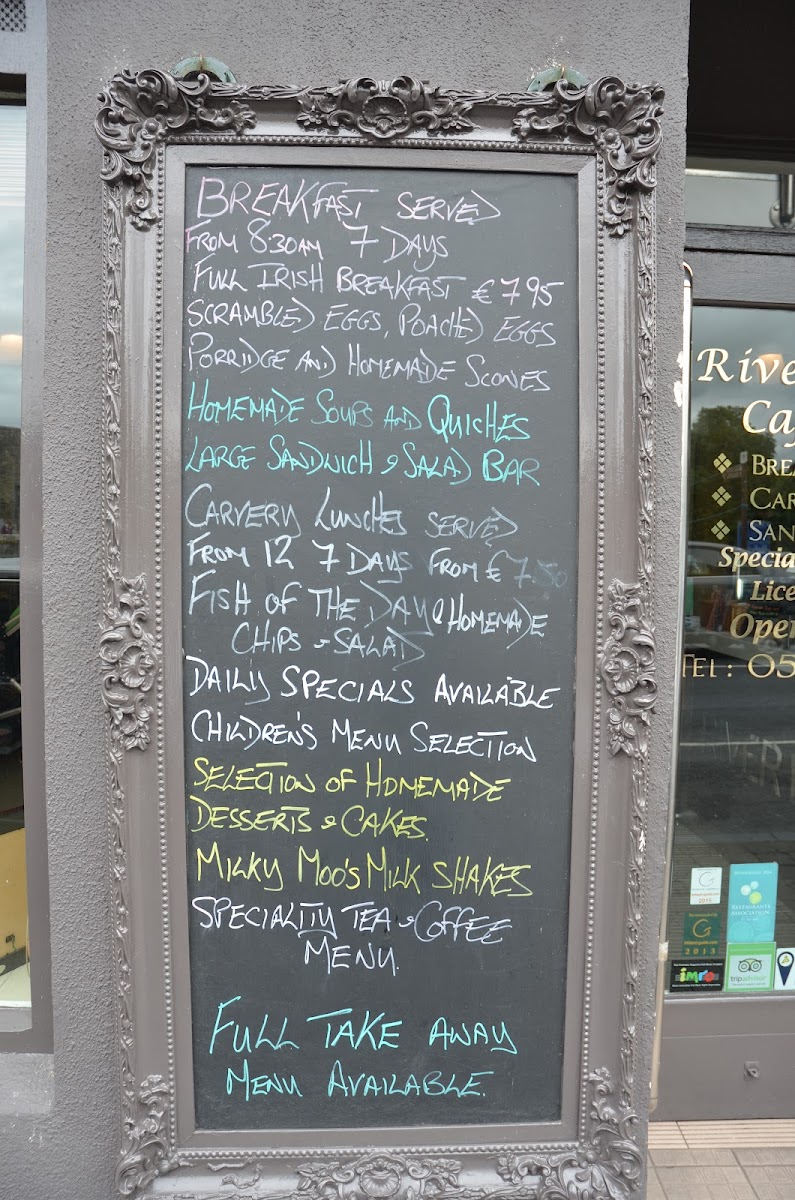 BREAKFAST SERVED
FROM 8.30AM 7 DAYS
FULL IRISH BREAKFAST €7.95
SCRAMBLED EGGS, POACHED EGGS
PORRIDGE AND HOMEMADE SCONES
HOMEMADE SOUPS AND QUICHES
LARGE SANDWICH & SALAD BAR
CARVERY LUNCHES SERVED
FROM 12 7 DAYS FROM €7.50
FISH OF THE DAY & HOMEMADE
CHIPS & SALAD
DAILY SPECIALS AVAILABLE
CHILDREN'S MENU SELECTION
SELECTION OF HOMEMADE
DESSERTS & CAKES.
MILKY MOO'S MILK SHAKES
SPECIALTIY TEA & COFFEE
MENU.
FULL TAKE AWAY
MENU AVAILABLE.
Rive
Ca
BREA
CAR
SAN
Specia
Lice
Open
TEL: 05
2013
RESTAURANTS
ASSOCIATION
imro
tripadvisor